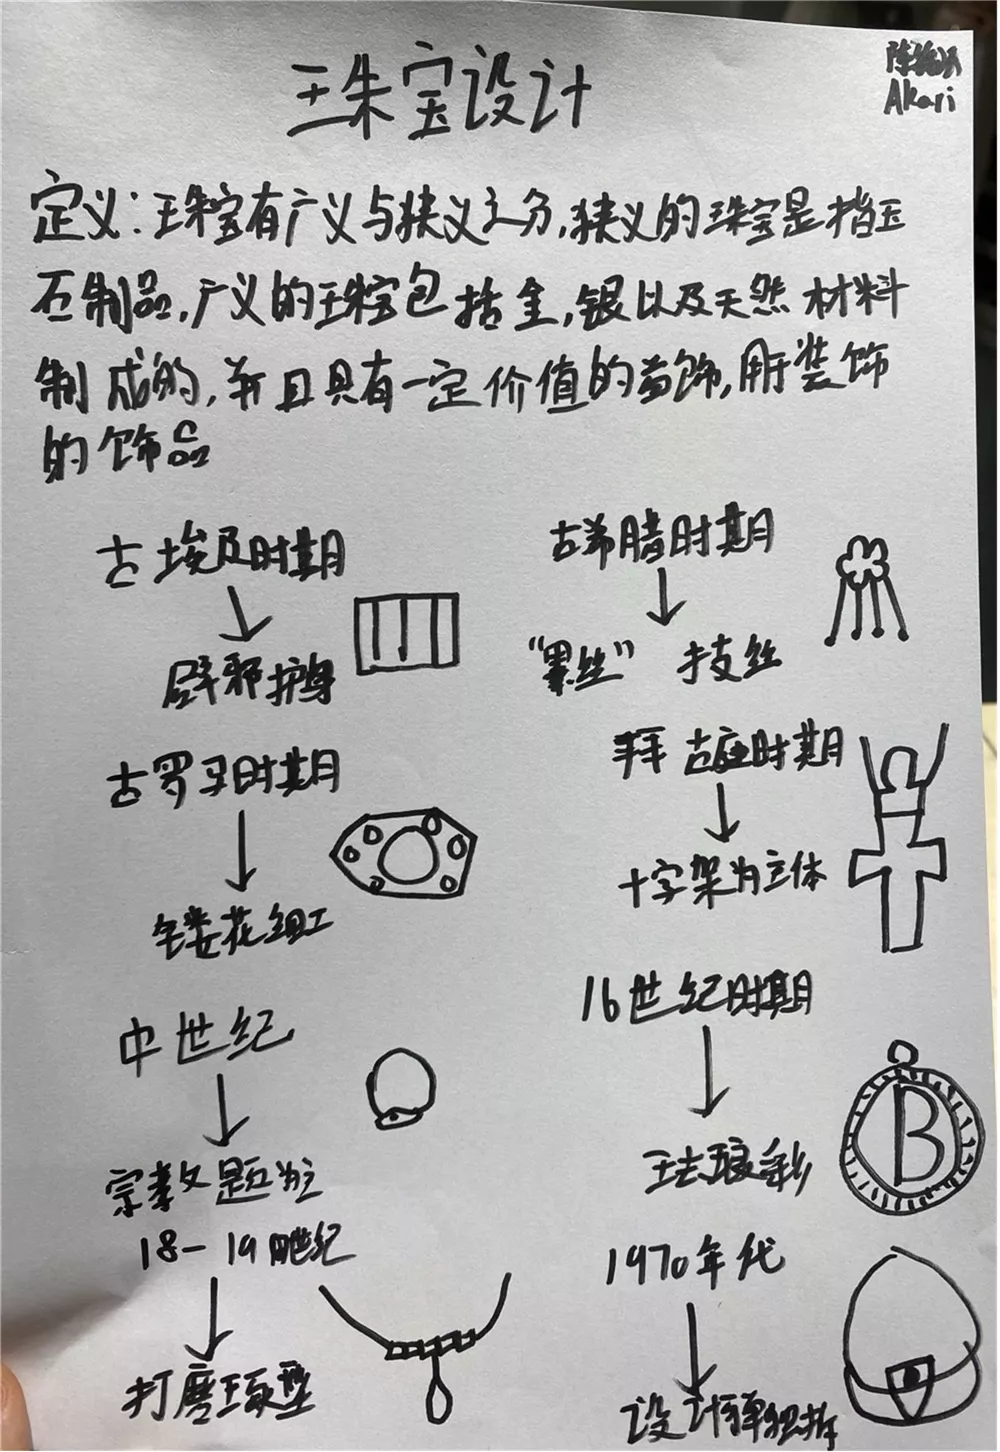 珠宝设计
Akari
定义:珠宝有广义与狭义之分,狭义的珠宝是指玉
石制品,广义的珠宝包括金,银以及天然材料
制成的,并且具有一定价值的首饰,用于装饰
的饰品
古埃及时期
辟邪护身
古希腊时期
“累丝” 技丝
古罗马时期
镂花组工
拜占庭时期
十字架为立体
中世纪
宗教题为主
16世纪时期
珐琅彩
B
18-19世纪
打磨琢型
1970年代
设计